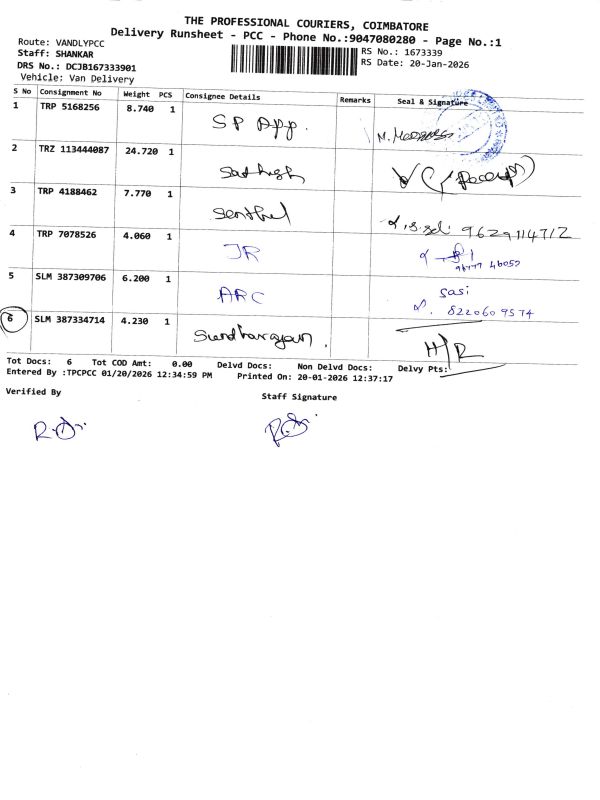 THE PROFESSIONAL COURIERS, COIMBATORE
Delivery Runsheet - PCC - Phone No.:9047080280 - Page No.:1
Route: VANDLYPCC
Staff: SHANKAR
DRS No.: DCJB167333901
Vehicle: Van Delivery
RS No.: 1673339
RS Date: 20-Jan-2026
S No Consignment No Weight PCS Consignee Details Remarks Seal & Signature
1 TRP 5168256 8.740 1 SP App.
2 TRZ 113444087 24.720 1 Sathish
3 TRP 4188462 7.770 1 Senthil 9629114712
4 TRP 7078526 4.060 1 JR
5 SLM 387309706 6.200 1 ARC Sasi
8220609574
6 SLM 387334714 4.230 1 H/R
Tot Docs: 6 Tot COD Amt: 0.00 Delvd Docs: Non Delvd Docs: Delvy Pts:
Entered By :TPCPCC 01/20/2026 12:34:59 PM Printed On: 20-01-2026 12:37:17
Verified By Staff Signature